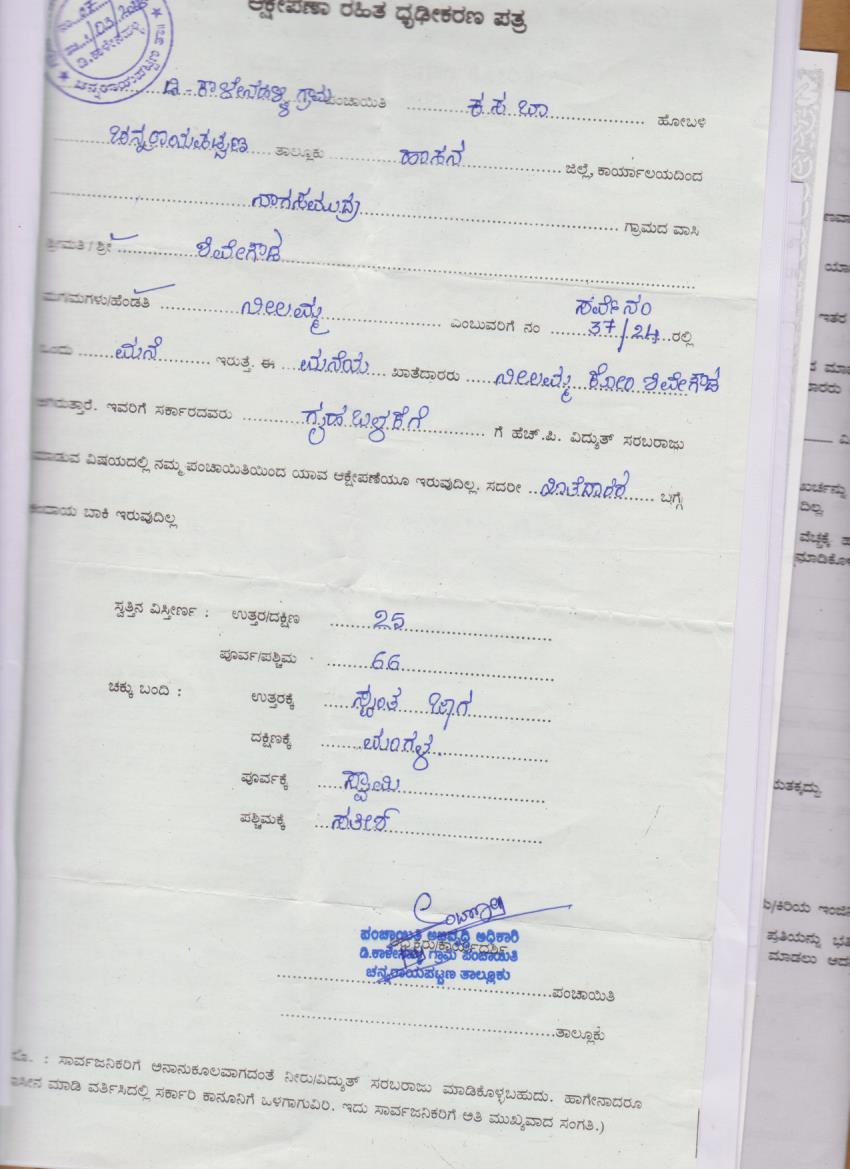 ಆಕ್ಷೇಪಣಾ ರಹಿತ ಧೃಡೀಕರಣ ಪತ್ರ
ಡಿ-ಕಾಳೇನಹಳ್ಳಿ ಗ್ರಾಮ ಪಂಚಾಯಿತಿ ಕಸಬಾ ಹೋಬಳಿ
ಚನ್ನರಾಯಪಟ್ಟಣ ತಾಲ್ಲೂಕು ಹಾಸನ ಜಿಲ್ಲೆ, ಕಾರ್ಯಾಲಯದಿಂದ
ನಾಗಸಮುದ್ರ ಗ್ರಾಮದ ವಾಸಿ
ಶ್ರೀಮತಿ / ಶ್ರೀ ಶಿವೇಗೌಡ
ಮಗ/ಮಗಳು/ಹೆಂಡತಿ ನೀಲಮ್ಮ ಎಂಬುವರಿಗೆ ನಂ ಸರ್ವೆ ನಂ 37/24 ರಲ್ಲಿ
ಒಂದು ಮನೆ ಇರುತ್ತೆ. ಈ ಮನೆಯ ಖಾತೆದಾರರು ನೀಲಮ್ಮ ಕೋಂ ಶಿವೇಗೌಡ
ಆಗಿರುತ್ತಾರೆ. ಇವರಿಗೆ ಸರ್ಕಾರದವರು ಗೃಹ ಬಳಕೆಗೆ ಗೆ ಹೆಚ್.ಪಿ. ವಿದ್ಯುತ್ ಸರಬರಾಜು
ಮಾಡುವ ವಿಷಯದಲ್ಲಿ ನಮ್ಮ ಪಂಚಾಯಿತಿಯಿಂದ ಯಾವ ಆಕ್ಷೇಪಣೆಯೂ ಇರುವುದಿಲ್ಲ. ಸದರೀ ಖಾತೆದಾರರ ಬಗ್ಗೆ
ಕಂದಾಯ ಬಾಕಿ ಇರುವುದಿಲ್ಲ
ಸ್ವತ್ತಿನ ವಿಸ್ತೀರ್ಣ : ಉತ್ತರ/ದಕ್ಷಿಣ 25
ಪೂರ್ವ/ಪಶ್ಚಿಮ 66
ಚಕ್ಕು ಬಂದಿ : ಉತ್ತರಕ್ಕೆ ಸ್ವಂತ ಜಾಗ
ದಕ್ಷಿಣಕ್ಕೆ ಮಂಗಳ
ಪೂರ್ವಕ್ಕೆ ಸ್ವಾಮಿ
ಪಶ್ಚಿಮಕ್ಕೆ ಸತೀಶ್
ಪಂಚಾಯಿತಿ ಅಭಿವೃದ್ಧಿ ಅಧಿಕಾರಿ
ಡಿ.ಕಾಳೇನಹಳ್ಳಿ ಗ್ರಾಮ ಪಂಚಾಯಿತಿ
ಚನ್ನರಾಯಪಟ್ಟಣ ತಾಲ್ಲೂಕು
ಪಂಚಾಯಿತಿ
ತಾಲ್ಲೂಕು
: ಸಾರ್ವಜನಿಕರಿಗೆ ಅನಾನುಕೂಲವಾಗದಂತೆ ನೀರು/ವಿದ್ಯುತ್ ಸರಬರಾಜು ಮಾಡಿಕೊಳ್ಳಬಹುದು. ಹಾಗೇನಾದರೂ
ಮಾಡಿ ವರ್ತಿಸಿದಲ್ಲಿ ಸರ್ಕಾರಿ ಕಾನೂನಿಗೆ ಒಳಗಾಗುವಿರಿ. ಇದು ಸಾರ್ವಜನಿಕರಿಗೆ ಅತಿ ಮುಖ್ಯವಾದ ಸಂಗತಿ.)